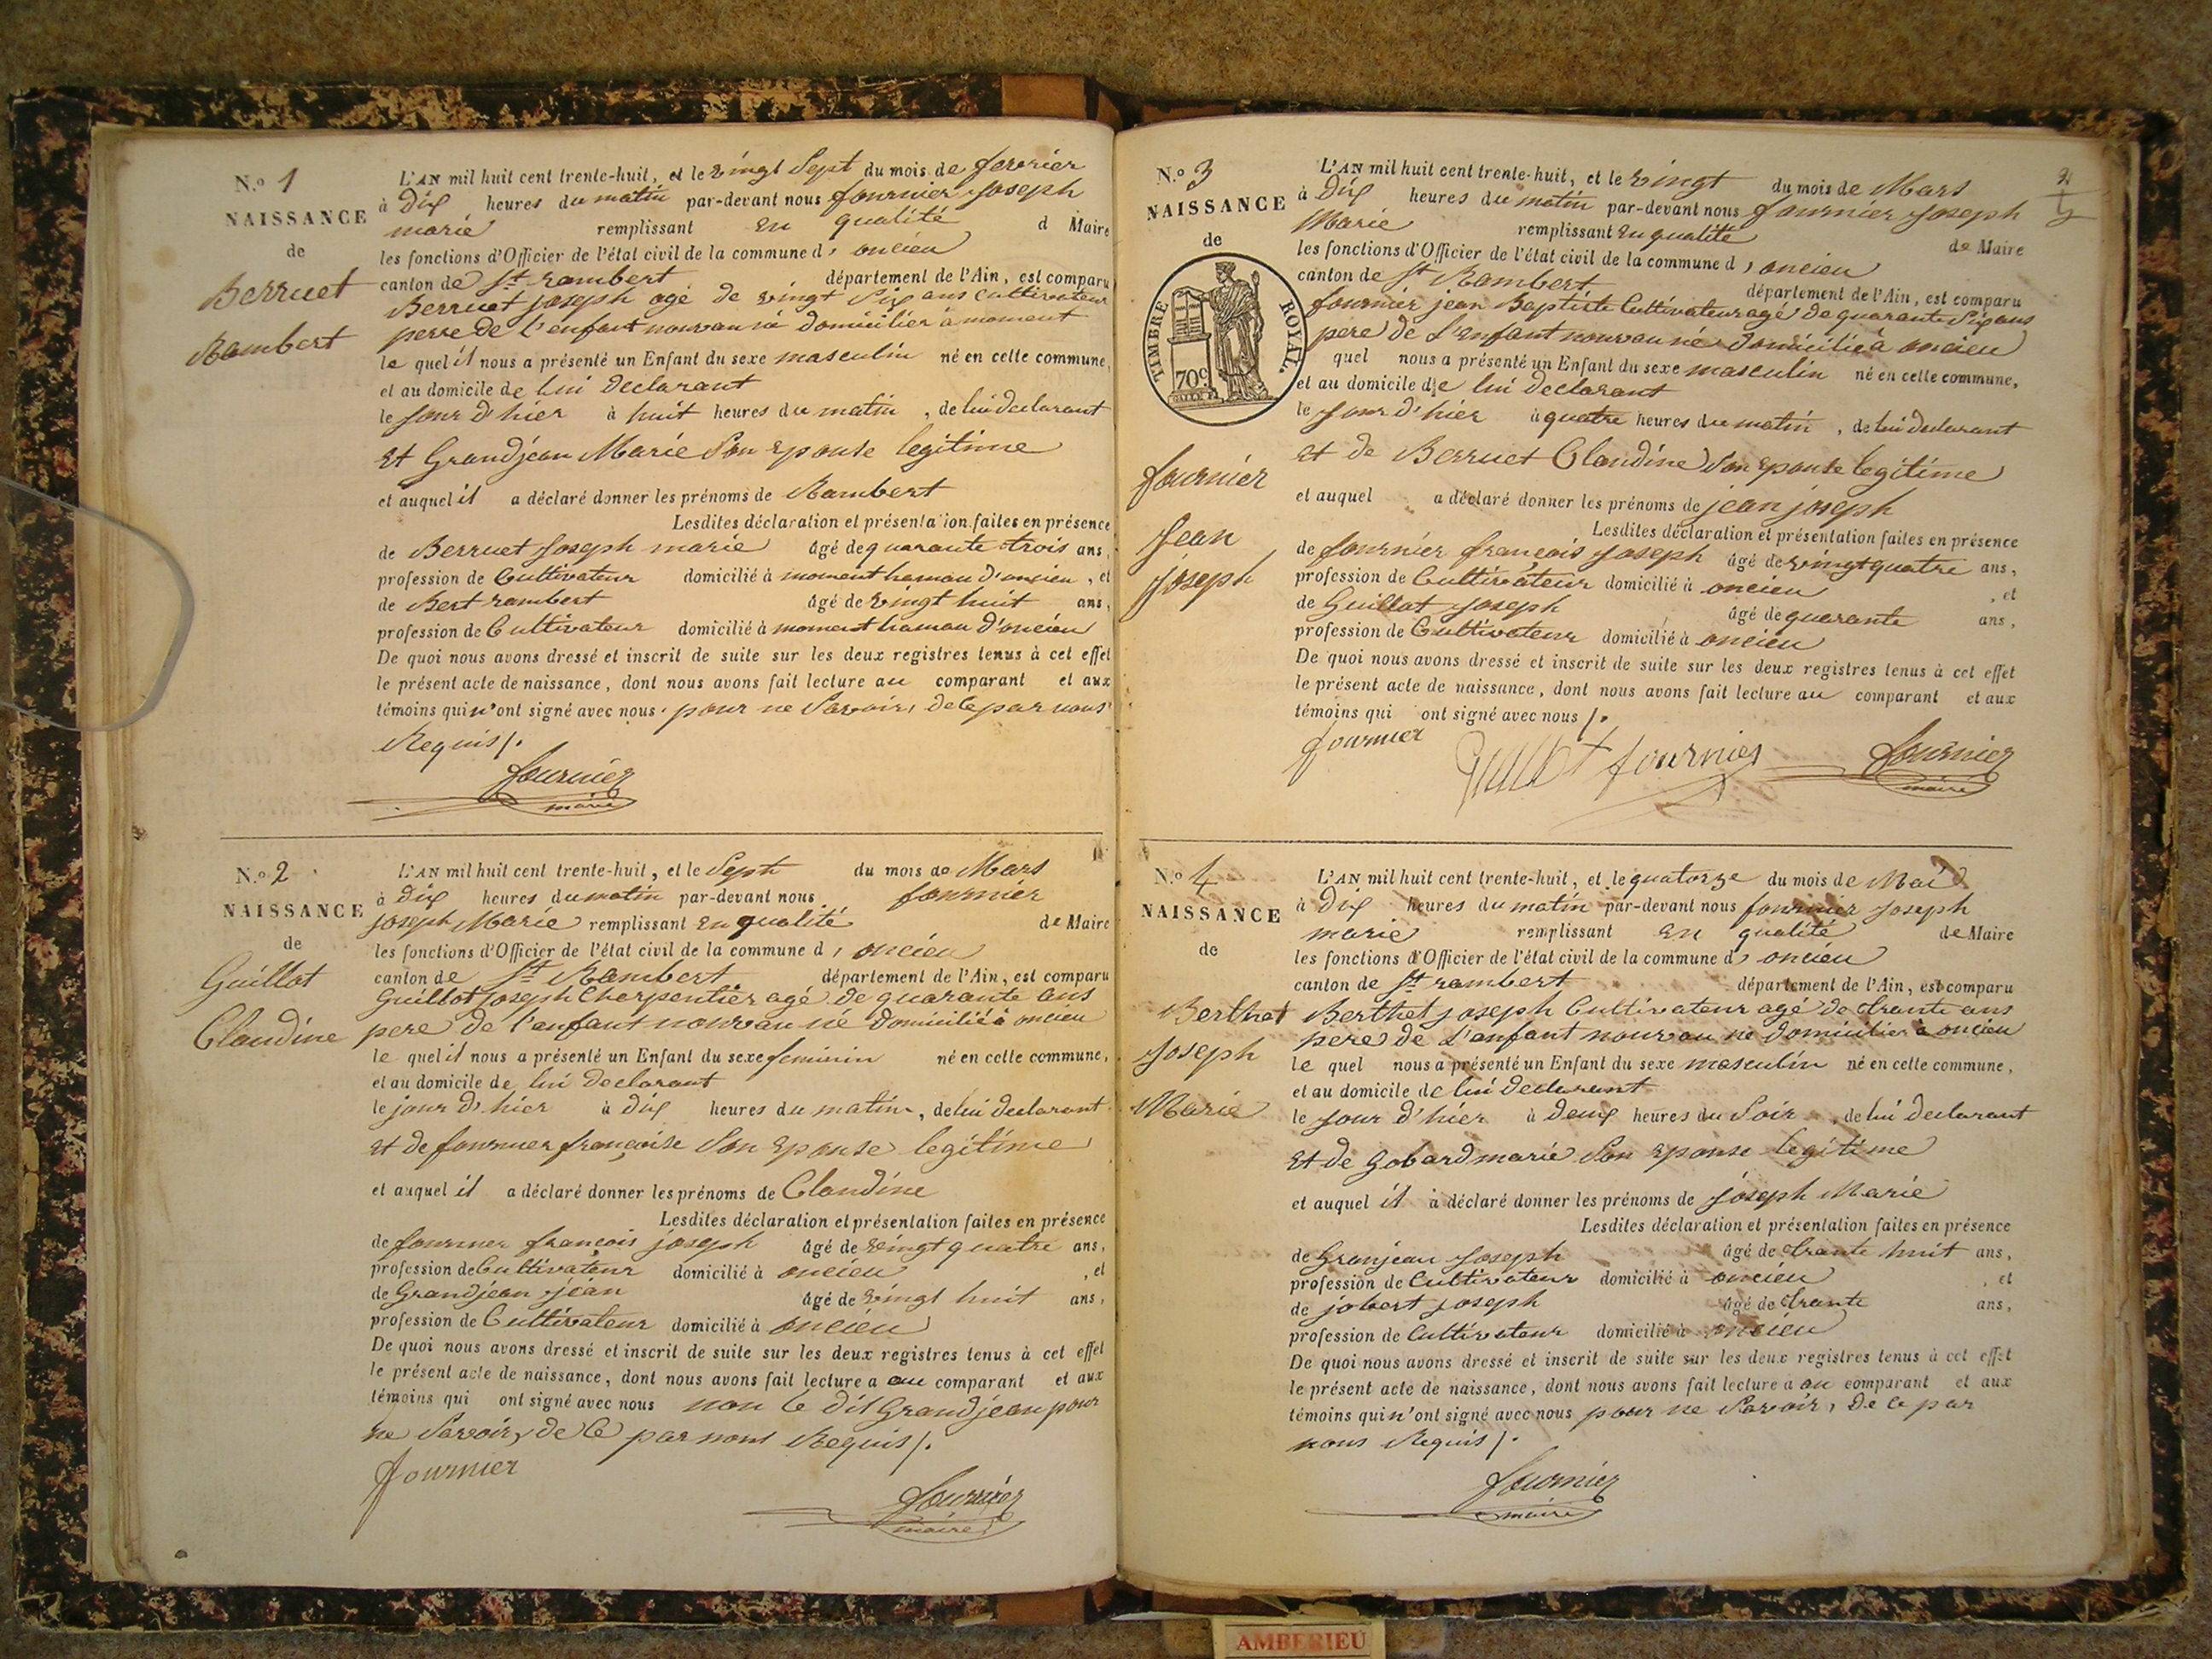 N.º 1
NAISSANCE
de
Berruet
Rambert
L'AN mil huit cent trente-huit, et le vingt Sept du mois de fevrier
à Dix heures du matin par-devant nous fournier Joseph
marie remplissant En qualité d Maire
les fonctions d'Officier de l'état civil de la commune d' oncieu
canton de St rambert département de l'Ain, est comparu
Berruet joseph agé de vingt Six ans Cultivateur
perre de l'enfant nouvau né domicilier à moment
le quel il nous a présenté un Enfant du sexe masculin né en cette commune,
et au domicile de lui declarant
le jour d'hier à huit heures du matin, de lui declarant
et Grandjean Marie Son Epouse legitime
et auquel il a déclaré donner les prénoms de Rambert
Lesdites déclaration et présentation faites en présence
de Berruet Joseph marie âgé de quarante trois ans,
profession de Cultivateur domicilié à moment hamau d'oncieu, et
de Bert rambert âgé de vingt huit ans,
profession de Cultivateur domicilié à moment hamau d'oncieu
De quoi nous avons dressé et inscrit de suite sur les deux registres tenus à cet effet
le présent acte de naissance, dont nous avons fait lecture au comparant et aux
témoins qui n'ont signé avec nous. pour ne Savoir, de Ce par nous
Requis /.
fournier
maire
N.º 2
NAISSANCE
de
Guillot
Claudine
L'AN mil huit cent trente-huit, et le Sept du mois de Mars
à Dix heures du matin par-devant nous fournier
joseph Marie remplissant En qualité de Maire
les fonctions d'Officier de l'état civil de la commune d' oncieu
canton de St Rambert département de l'Ain, est comparu
Guillot joseph Cherpentier agé de quarante ans
pere de l'enfant nouvau né domicilié à oncieu
le quel il nous a présenté un Enfant du sexe feminin né en cette commune,
et au domicile de lui declarant
le jour d'hier à dix heures du matin, de lui declarant
et de fournier françoise Son Epouse legitime
et auquel il a déclaré donner les prénoms de Claudine
Lesdites déclaration et présentation faites en présence
de fournier françois joseph âgé de vingt quatre ans,
profession de Cultivateur domicilié à oncieu, et
de Grandjean jean âgé de vingt huit ans,
profession de Cultivateur domicilié à oncieu
De quoi nous avons dressé et inscrit de suite sur les deux registres tenus à cet effet
le présent acte de naissance, dont nous avons fait lecture a au comparant et aux
témoins qui ont signé avec nous non le dit Grandjean pour
ne Savoir, de Ce par nous Requis /.
fournier
fournier
maire
N.º 3
NAISSANCE
de
TIMBRE ROYAL
70c
fournier
Jean
joseph
L'AN mil huit cent trente-huit, et le vingt du mois de Mars
à Dix heures du matin par-devant nous fournier Joseph
Marie remplissant En qualité de Maire
les fonctions d'Officier de l'état civil de la commune d' oncieu
canton de St Rambert département de l'Ain, est comparu
fournier jean Baptiste Cultivateur agé de quarante Six ans
pere de l'enfant nouvau né domicilié à oncieu
quel nous a présenté un Enfant du sexe masculin né en cette commune,
et au domicile de lui declarant
le jour d'hier à quatre heures du matin, de lui declarant
et de Berruet Claudine Son Epouse legitime
et auquel a déclaré donner les prénoms de jean joseph
Lesdites déclaration et présentation faites en présence
de fournier françois Joseph âgé de vingt quatre ans,
profession de Cultivateur domicilié à oncieu, et
de Guillot Joseph âgé de quarante ans,
profession de Cultivateur domicilié à oncieu
De quoi nous avons dressé et inscrit de suite sur les deux registres tenus à cet effet
le présent acte de naissance, dont nous avons fait lecture au comparant et aux
témoins qui ont signé avec nous /.
fournier Guillot fournier fournier
maire
N.º 4
NAISSANCE
de
Berthet
Joseph
Marie
L'AN mil huit cent trente-huit, et le quatorze du mois de Mai
à Dix heures du matin par-devant nous fournier Joseph
marie remplissant En qualité de Maire
les fonctions d'Officier de l'état civil de la commune d' oncieu
canton de St rambert département de l'Ain, est comparu
Berthet joseph Cultivateur agé de trante ans
pere de l'enfant nouvau né domicilier à oncieu
le quel nous a présenté un Enfant du sexe masculin né en cette commune,
et au domicile de lui declarant
le jour d'hier à deux heures du Soir, de lui declarant
et de Gobard marie Son Epouse legitime
et auquel il a déclaré donner les prénoms de joseph Marie
Lesdites déclaration et présentation faites en présence
de Granjean Joseph âgé de trante huit ans,
profession de Cultivateur domicilié à oncieu, et
de jobert joseph âgé de trante ans,
profession de Cultivateur domicilié à oncieu
De quoi nous avons dressé et inscrit de suite sur les deux registres tenus à cet effet
le présent acte de naissance, dont nous avons fait lecture a au comparant et aux
témoins qui n'ont signé avec nous pour ne Savoir, de Ce par
nous Requis /.
fournier
maire
AMBERIEU